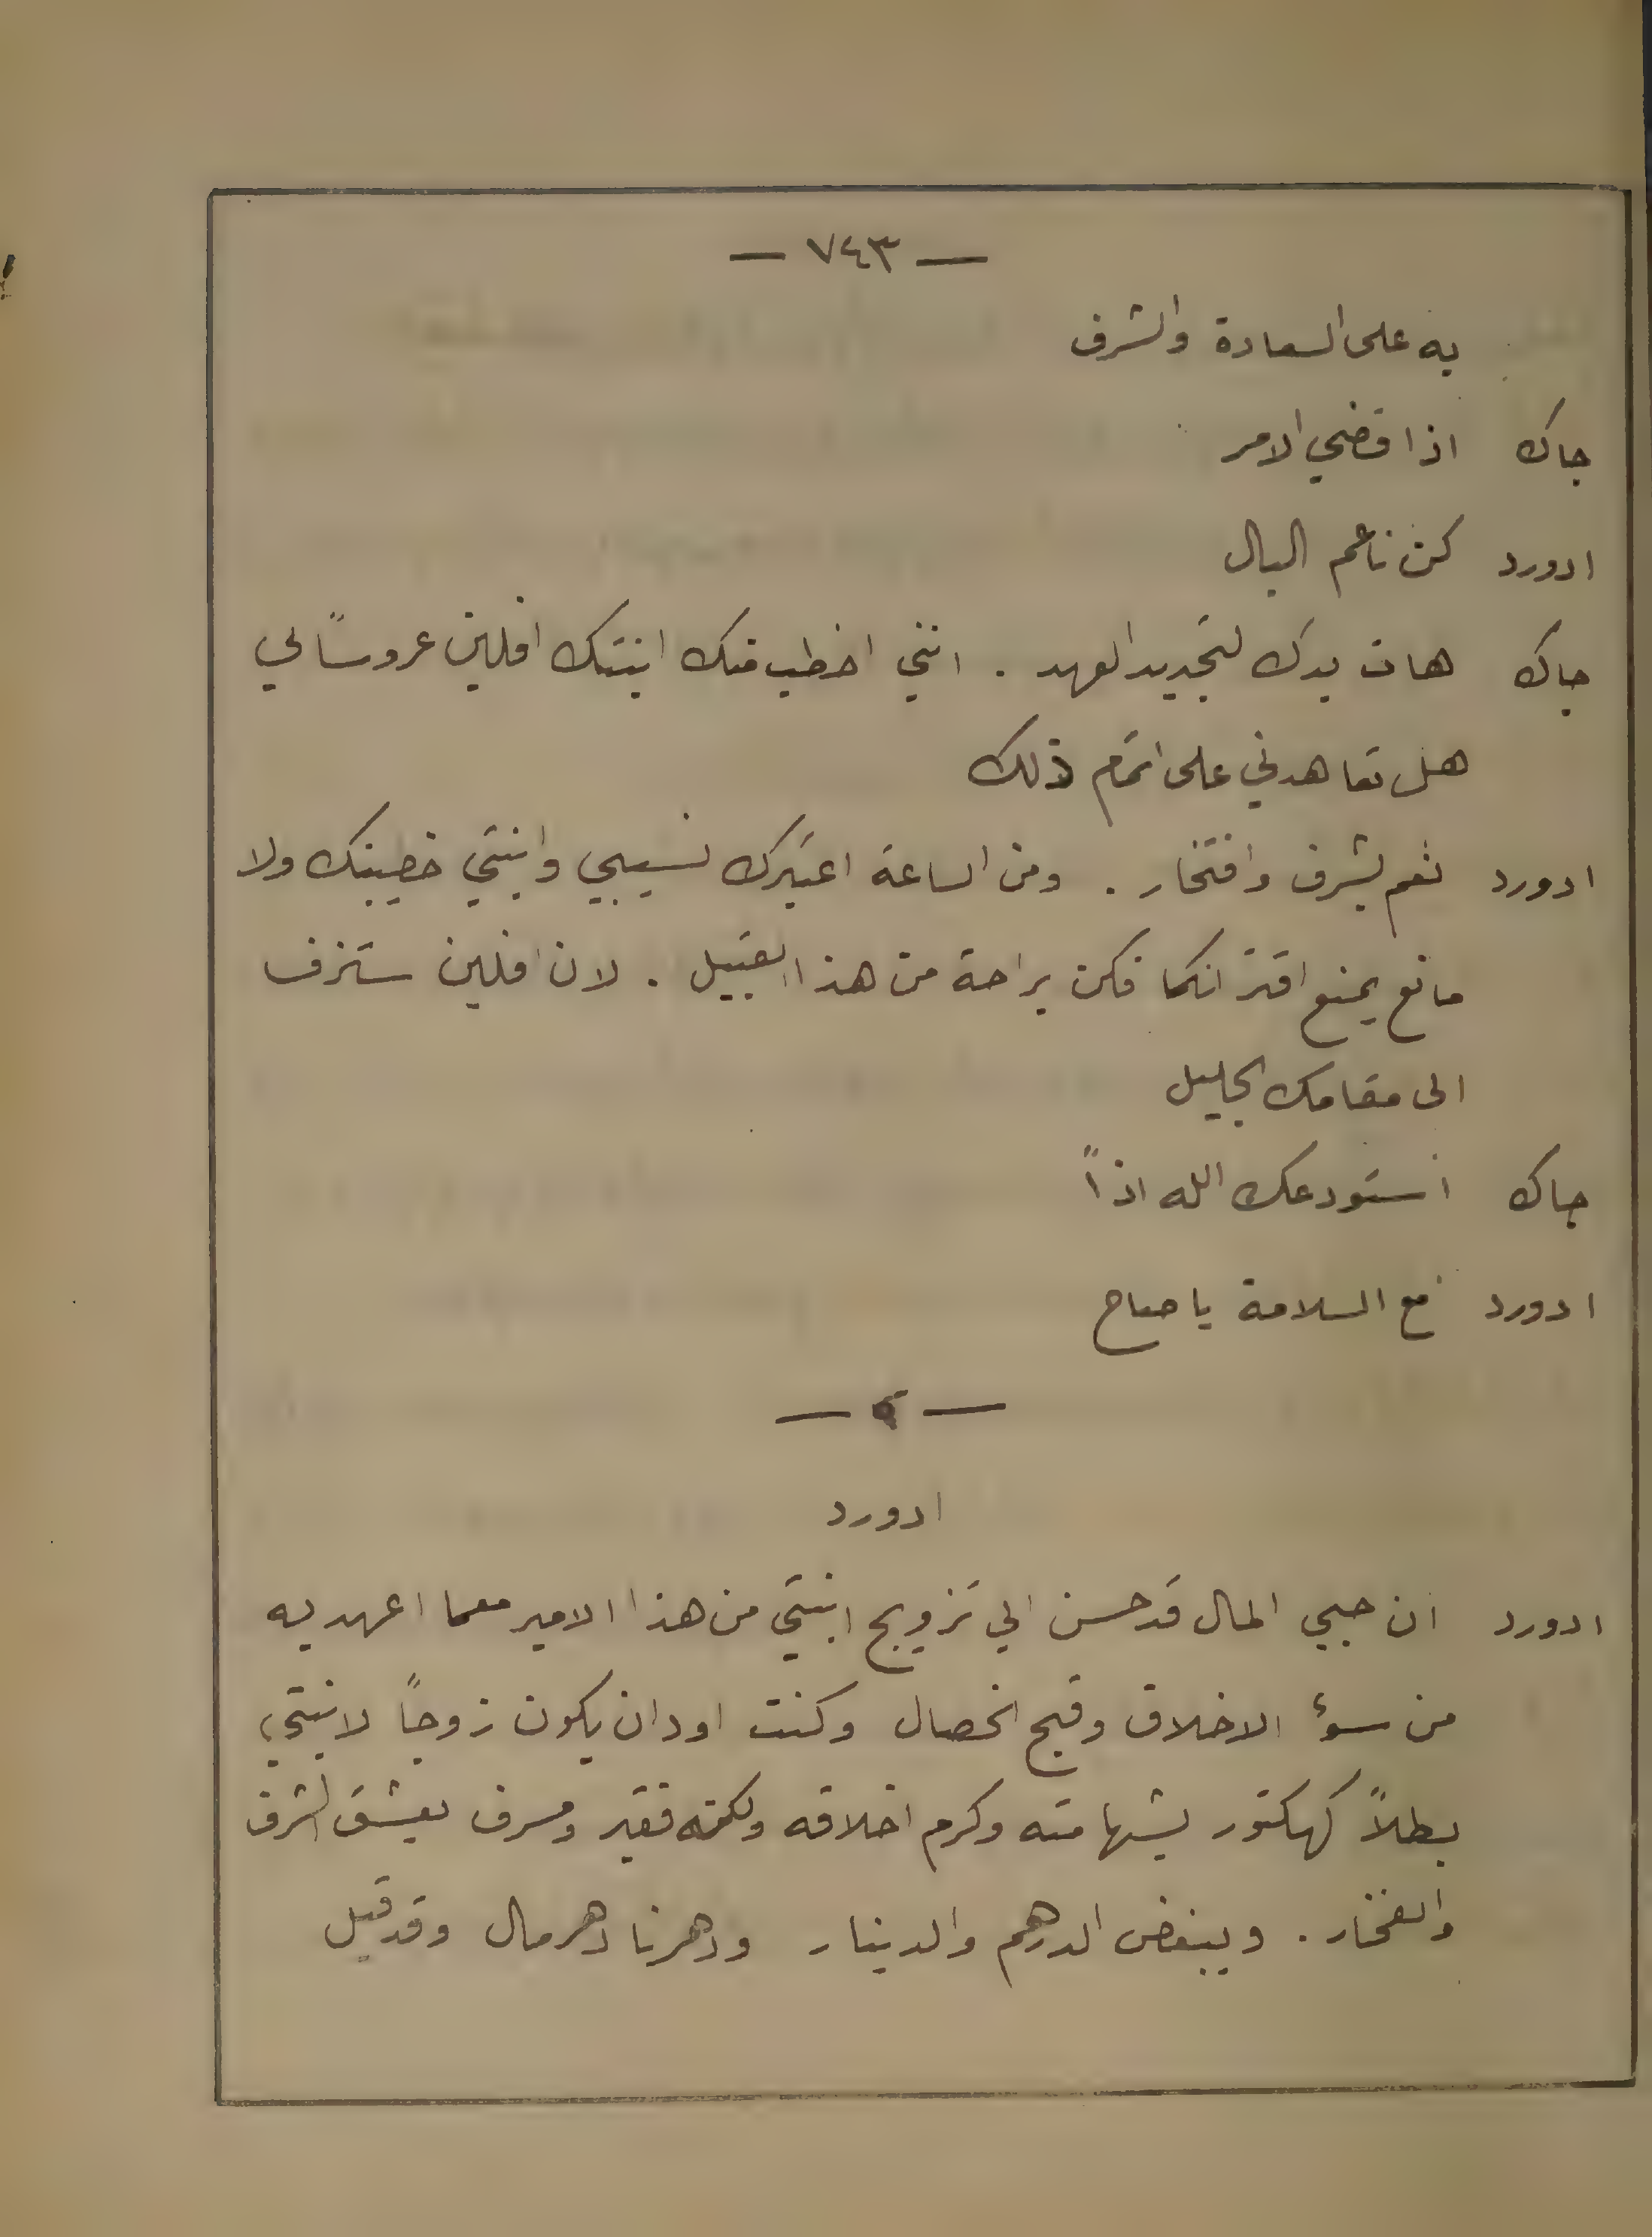 — ٧٤٣ —
به على السعادة والشرف
جاك اذا قضي الامر
ادورد كن ناعم البال
جاك هات يدك لتجديد العهد . انني اخطب منك ابنتك افلين عروساً لي
هل تعاهدني على اتمام ذلك
ادورد نعم بشرف وافتخار . ومن الساعة اعتبرك نسيبي وابنتي خطيبتك ولا
مانع يمنع اقترانكما فكن براحة من هذا القبيل . لان افلين ستزف
الى مقامك الجليل
جاك استودعك الله اذاً
ادورد مع السلامة يا صاح
ادورد
ادورد ان حبي المال قد حسن الي تزويج ابنتي من هذا الامير معما اعهد به
من سوء الاخلاق وقبح الخصال وكنت اود ان يكون زوجاً لابنتي
بطلاً كهكتور بشهامته وكرم اخلاقه ولكنه فقير ومسرف يعشق الشرف
والفخار . ويبغض الدرهم والدينار ودهرنا دهر مال وقد قيل